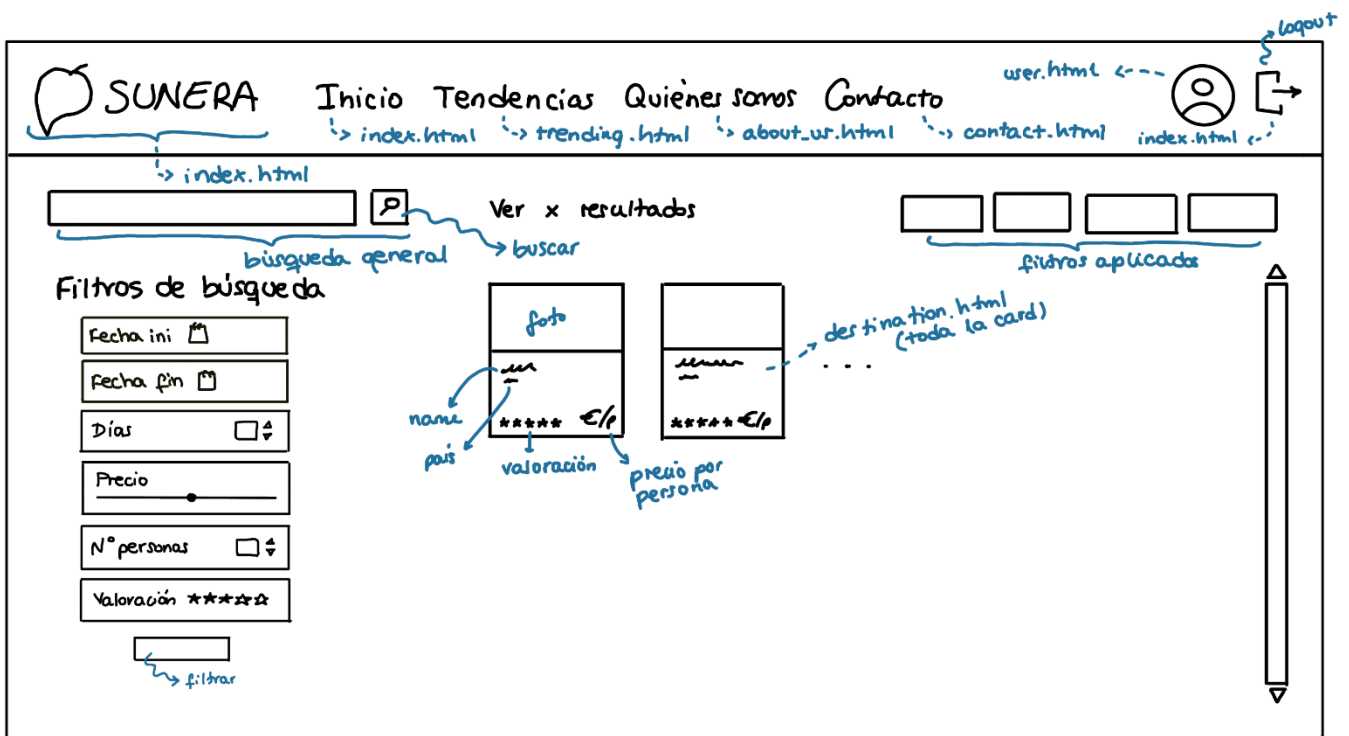 logout
SUNERA
Inicio Tendencias Quiénes somos Contacto
user.html
index.html trending.html about_us.html contact.html index.html
index.html
Ver x resultados
búsqueda general
buscar
filtros aplicados
Filtros de búsqueda
Fecha ini
Fecha fin
Días
Precio
Nº personas
Valoración
filtrar
foto
destination.html
(toda la card)
. . .
name
***** €/p
***** €/p
país
valoración
precio por
persona